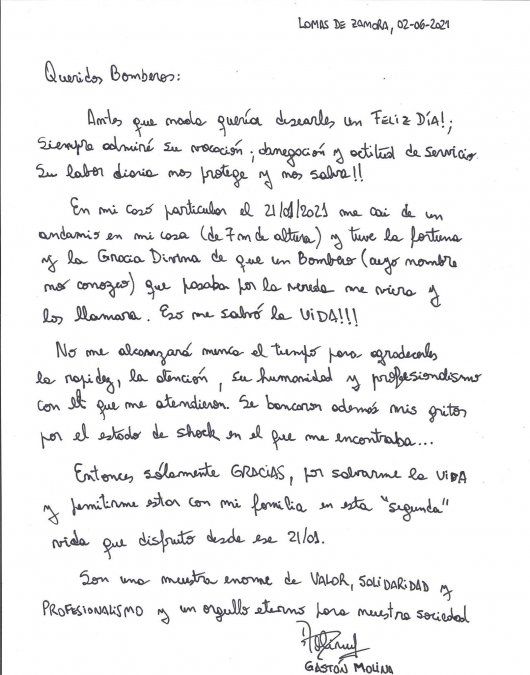 LOMAS DE ZAMORA, 02-06-2021
Queridos Bomberos:
Antes que nada quería desearles un FELIZ DÍA!;
Siempre admiré su vocación; abnegación y actitud de servicio
Su labor diaria nos protege y nos salva!!
En mi caso particular el 21/01/2021 me caí de un
andamio en mi casa (de 7m de altura) y tuve la fortuna
y la Gracia Divina de que un Bombero (cuyo nombre
no conozco) que pasaba por la vereda me viera y
los llamara. Eso me salvó la VIDA!!!
No me alcanzará nunca el tiempo para agradecerles
la rapidez, la atención, su humanidad y profesionalismo
con el que me atendieron. Se bancaron además mis gritos
por el estado de shock en el que me encontraba...
Entonces sólamente GRACIAS, por salvarme la VIDA
y permitirme estar con mi familia en esta "segunda"
vida que disfruto desde ese 21/01.
Son una muestra enorme de VALOR, SOLIDARIDAD y
PROFESIONALISMO y un orgullo eterno para nuestra sociedad
GASTÓN MOLINA